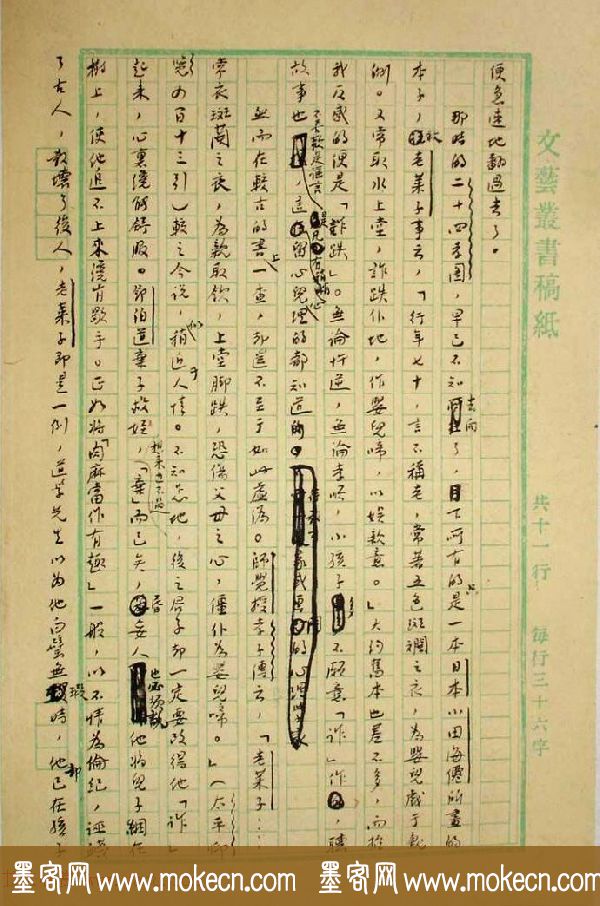 文藝叢書稿紙 共十一行 每行三十六字
便急速地翻過去了。
那時的二十四孝圖，早已不知去向了，目下所有的只是一本日本小田海僊所畫的
本子，敘老萊子事云，「行年七十，言不稱老，常著五色斑斕之衣，為嬰兒戲于親
側。又常取水上堂，詐跌仆地，作嬰兒啼，以娛親意。」大約舊本也差不多，而招
我反感的便是「詐跌」。無論忤逆，無論孝順，小孩子多不願意「詐」作，聽
故事也不喜歡是謠言，這是凡有稍稍留心兒童心理的都知道的。
然而在較古的書上一查，卻還不至于如此虛偽。師覺授孝子傳云，「老萊子……
常衣斑蘭之衣，為親取飲，上堂腳跌，恐傷父母之心，僵仆為嬰兒啼。」（太平御
覽四百十三引）較之今說，似稍近于人情。不知怎地，後之君子卻一定要改得他「詐」
起來，心裏纔能舒服。鄧伯道棄子救侄，想來也不過「棄」而已矣，昏妄人也必須說他將兒子綑在
樹上，使他追不上來纔肯歇手。正如將「肉麻當作有趣」一般，以不情為倫紀，誣蔑
了古人，教壞了後人，老萊子即是一例，道學先生以為他白璧無瑕時，他卻已在孩子
墨客网 www.mokecn.com 墨客网 www.mokecn.com